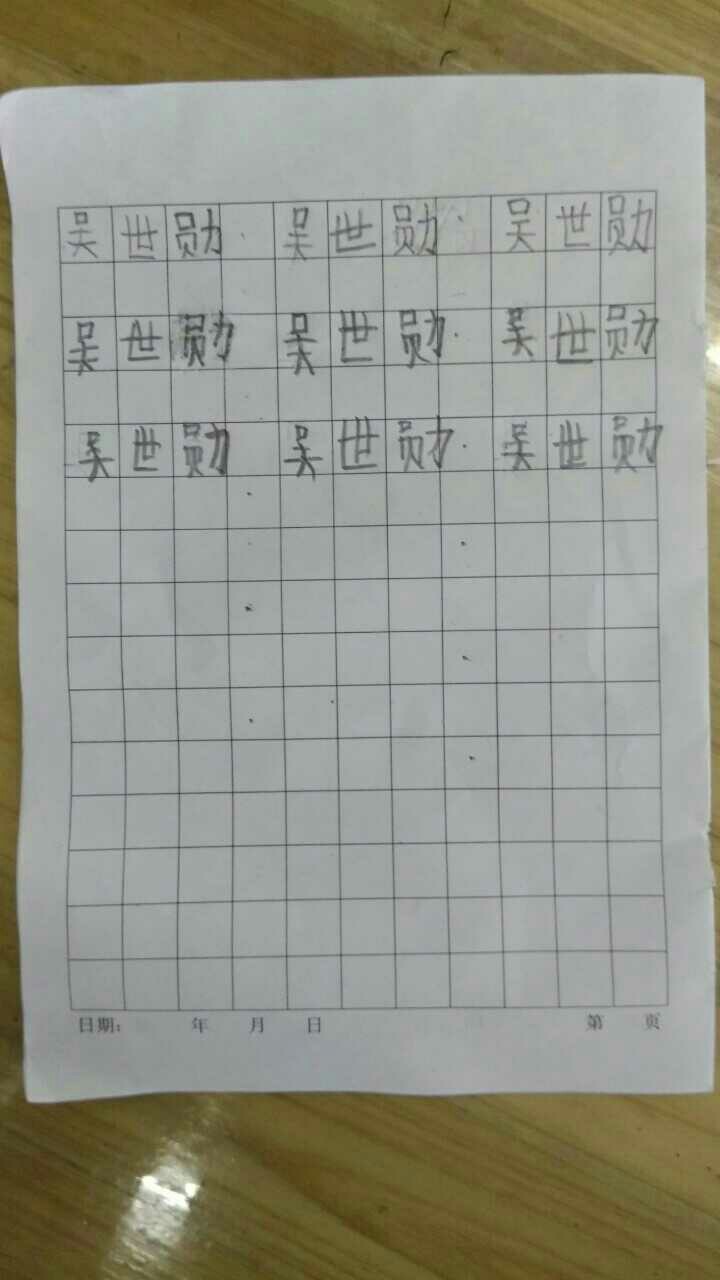 吴世勋 吴世勋 吴世勋
吴世勋 吴世勋 吴世勋
吴世勋 吴世勋 吴世勋
日期: 年 月 日 第 页